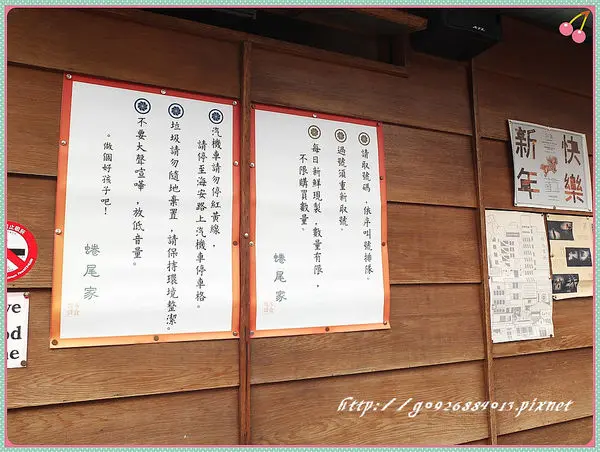 請取號碼，依序叫號排隊。
過號須重新取號。
每日新鮮現製，數量有限，
不限購買數量。
蜷尾家
汽機車請勿停紅黃線，
請停至海安路上汽機車停車格。
垃圾請勿隨地棄置，請保持環境整潔。
不要大聲喧嘩，放低音量。
。做個好孩子吧！
蜷尾家
新年
快樂
ve
od
ne
http://g0926884013.pixnet